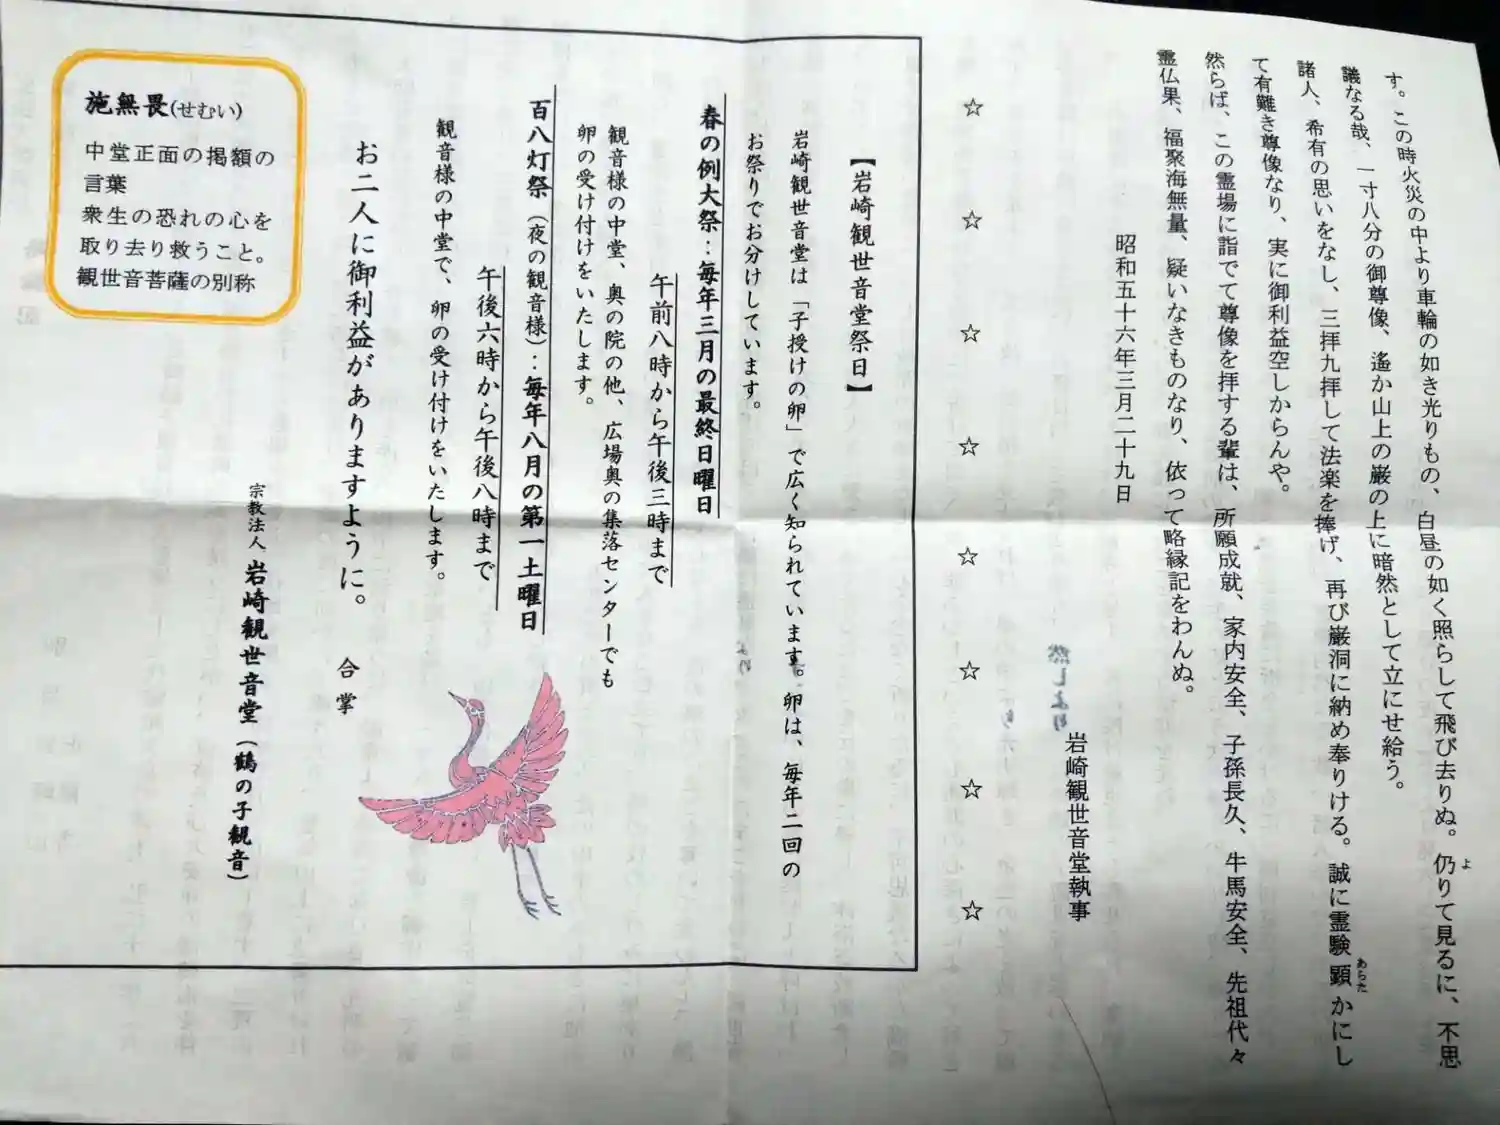 す。この時火災の中より車輪の如き光りもの、白昼の如く照らして飛び去りぬ。仍りて見るに、不思
議なる哉、一寸八分の御尊像、遙か山上の巌の上に暗然として立にせ給う。
諸人、希有の思いをなし、三拝九拝して法楽を捧げ、再び巌洞に納め奉りける。誠に霊験顕かにし
て有難き尊像なり、実に御利益空しからんや。
然らば、この霊場に詣でて尊像を拝する輩は、所願成就、家内安全、子孫長久、牛馬安全、先祖代々
霊仏果、福聚海無量、疑いなきものなり、依って略縁記をわんぬ。
よ
あらた
昭和五十六年三月二十九日
岩崎観世音堂執事
☆ ☆ ☆ ☆ ☆ ☆ ☆ ☆
【岩崎観世音堂祭日】
岩崎観世音堂は「子授けの卵」で広く知られています。卵は、毎年二回の
お祭りでお分けしています。
春の例大祭：毎年三月の最終日曜日
午前八時から午後三時まで
観音様の中堂、奥の院の他、広場奥の集落センターでも
卵の受け付けをいたします。
百八灯祭（夜の観音様）：毎年八月の第一土曜日
午後六時から午後八時まで
観音様の中堂で、卵の受け付けをいたします。
お二人に御利益がありますように。 合掌
宗教法人 岩崎観世音堂（鶴の子観音）
施無畏(せむい)
中堂正面の掲額の
言葉
衆生の恐れの心を
取り去り救うこと。
観世音菩薩の別称